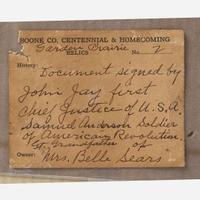 BOONE CO. CENTENNIAL & HOMECOMING
Garden Prairie
RELICS No. 2
History:
Document signed by
John Jay first
Chief Justice of U.S.A.
Samuel Anderson Soldier
of American Revolution
Gt. Grandfather of
Owner: Mrs. Belle Sears